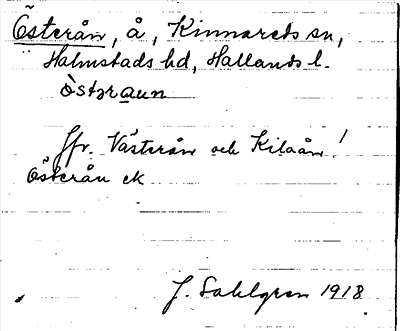 Österån, å, Kinnareds sn,
Halmstads hd, Hallands l.
òstəraun
Jfr. Västerån och Kilaån!
Österån ek
J. Sahlgren 1918